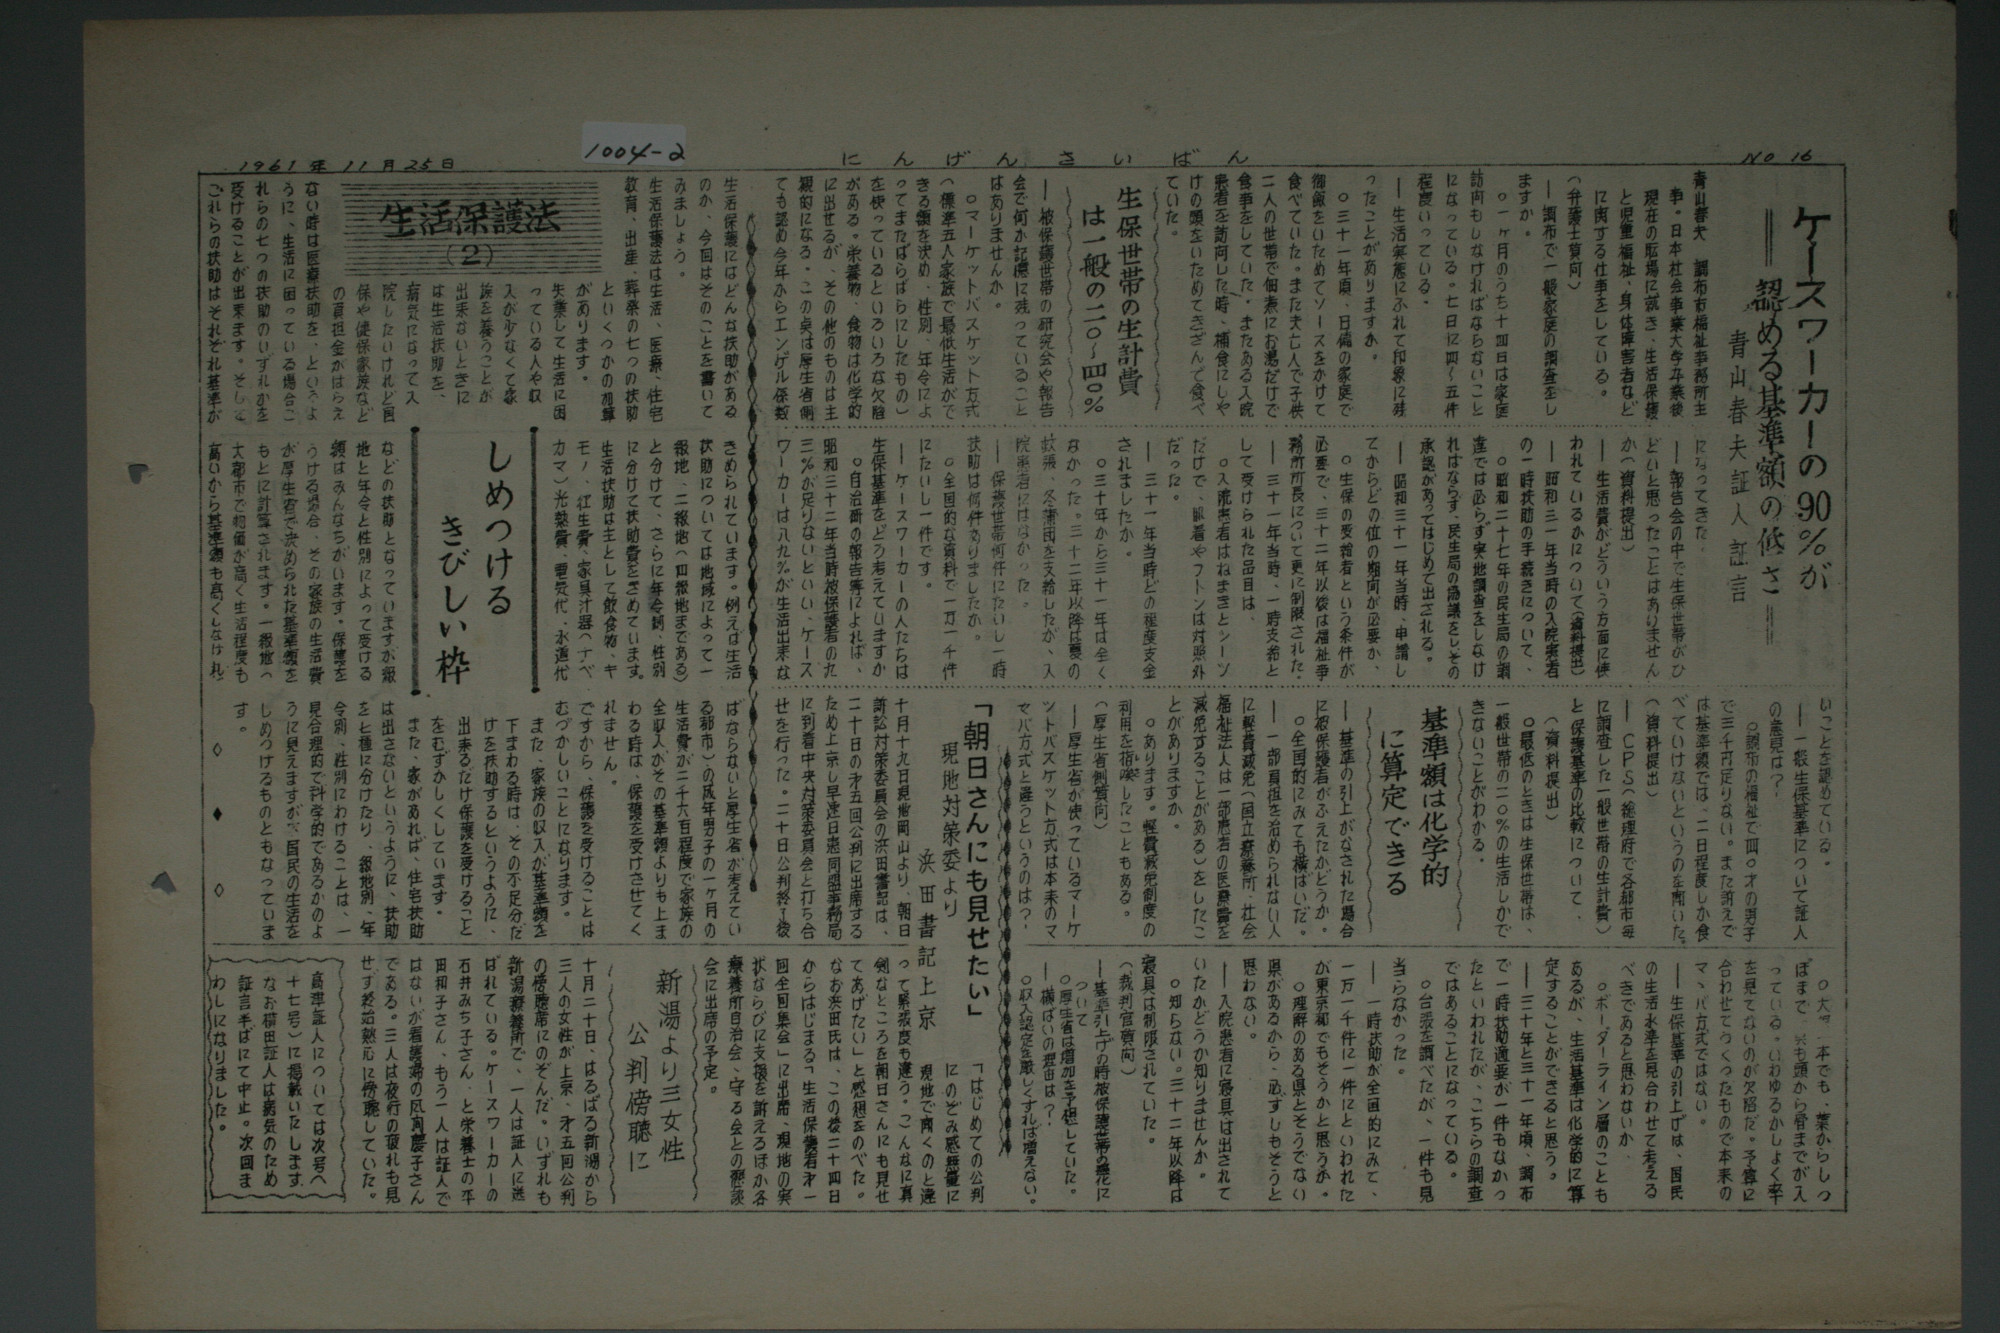 1961年11月25日
1004-2
にんげんさいばん
No 16
ケースワーカーの90％が
＝認める基準額の低さ＝
青山春夫証人証言
青山春夫　調布市福祉事務所主
事・日本社会事業大学卒業後
現在の職場に就き、生活保護
と児童福祉、身体障害者など
に関する仕事をしている。
（弁護士質問）
―調布で一般家庭の調査をし
ますか。
○一ヶ月のうち十四日は家庭
訪問もしなければならないこと
になっている。七日に四〜五件
程度いっている。
―生活実態にふれて印象に残
ったことがありますか。
○三十一年頃、日傭の家庭で
御飯をいためてソースをかけて
食べていた。また夫七人で子供
二人の世帯で佃煮にお湯だけで
食事をしていた。またある入院
患者を訪問した時、補食にしゃ
けの頭をいためてきざんで食べ
ていた。
生保世帯の生計費
は一般の二〇〜四〇％
―被保護世帯の研究会や報告
会で何か記憶に残っていること
はありませんか。
○マーケットバスケット方式
（標準五人家族で最低生活がで
きる額を決め、性別、年令によ
ってまたばらばらにしたもの）
を使っているといろいろな欠陥
がある。栄養物、食物は化学的
に出せるが、その他のものは主
観的になる。この点は厚生省側
でも認め今年からエンゲル係数
になってきた。
―報告会の中で生保世帯がひ
どいと思ったことはありません
か（資料提出）
―生活費がどういう方面に使
われているかについて（資料提出）
―昭和三一年当時の入院患者
の一時扶助の手続きについて、
○昭和二十七年の民生局の調
達では必らず実地調査をしなけ
ればならず、民生局の協議をしその
承認があってはじめて出される。
―昭和三十一年当時、申請し
てからどの位の期間が必要か、
○生保の受給者という条件が
必要で、三十二年以後は福祉事
務所所長について更に制限された。
―三十一年当時、一時支給と
して受けられた品目は、
○入院患者はねまきとシーツ
だけで、肌着やフトンは対照外
だった。
―三十一年当時どの程度支給
されましたか。
○三十年から三十一年は全く
なかった。三十二年以降は夏の
蚊張、冬蒲団を支給したが、入
院患者にはなかった。
―保護世帯何件にたいし一時
扶助は何件ありましたか。
○全国的な資料で一万一千件
にたいし一件です。
―ケースワーカーの人たちは
生保基準をどう考えていますか
○自治研の報告等によれば、
昭和三十二年当時被保護者の九
三％が足りないといい、ケース
ワーカーは八九％が生活出来な
いことを認めている。
―一般生保基準について証人
の意見は？
○調布の福祉で四〇才の男子
で三千円足りない。また訴えで
は基準額では、二日程度しか食
べていけないというのを聞いた。
（資料提出）
―ＣＰＳ（総理府で各都市毎
に調査した一般世帯の生計費）
と保護基準の比較について、
（資料提出）
○最低のときは生保世帯は、
一般世帯の二〇％の生活しかで
きないことがわかる。
基準額は化学的
に算定できる
―基準の引上がなされた場合
に被保護者がふえたかどうか。
○全国的にみても横ばいだ。
―一部負担を治められない人
に軽費減免（国立療養所、社会
福祉法人は一部患者の医療費を
減免することがある）をしたこ
とがありますか。
○あります。軽費減免制度の
利用を指導したこともある。
（厚生省側質問）
―厚生省が使っているマーケ
ットバスケット方式は本来のマ
マバ方式と違うというのは？。
○大根一本でも、葉からしっ
ぽまで、魚も頭から骨までが入
っている。いわゆるかしょく率
を見てないのが欠陥だ。予算に
合わせてつくったもので本来の
マ、バ方式ではない。
―生保基準の引上げは、国民
の生活水準を見合わせて考える
べきであると思わないか、
○ボーダーライン層のことも
あるが、生活基準は化学的に算
定することができると思う。
―三十年と三十一年頃、調布
で一時扶助適要が一件もなかっ
たといわれたが、こちらの調査
ではあることになっている。
○台張を調べたが、一件も見
当らなかった。
―一時扶助が全国的にみて、
一万一千件に一件にといわれた
が東京都でもそうかと思うが。
○理解のある県とそうでない
県があるから、必ずしもそうと
思わない。
―入院患者に寝具は出されて
いたかどうか知りませんか。
○知らない。三十二年以降は
寝具は制限されていた。
（裁判官質問）
―基準引上げの時被保護世帯の増化に
ついて
○厚生省は増加を予想していた。
―横ばいの理由は？
○収入認定を厳しくすれば増えない。
生活保護法
（２）
生活保護にはどんな扶助がある
のか、今回はそのことを書いて
みましょう。
生活保護法は生活、医療、住宅
教育、出産、葬祭の七つの扶助
といくつかの加算
があります。
失業して生活に困
っている人や収
入が少なくて家
族を養うことが
出来ないときに
は生活扶助を、
病気になって入
院したいけれど国
保や健保家族など
の負担金がはらえ
ない時は医療扶助を、というよ
うに、生活に困っている場合こ
れらの七つの扶助のいずれかを
受けることが出来ます。そして
これらの扶助はそれぞれ基準が
しめつける
きびしい枠
きめられています。例えば生活
扶助については地域によって一
級地、二級地（四級地まである）
と分けて、さらに年令制、性別
に分けて扶助費をきめています。
生活扶助は主として飲食物、キ
モノ、衛生費、家具汁器（ナベ
カマ）光熱費、電気代、水道代
などの扶助となっていますが級
地と年令と性別によって受ける
額はみんなちがいます。保護を
うける場合、その家族の生活費
が厚生省で決められた基準額を
もとに計算されます。一級地（
大都市で物価が高く生活程度も
高いから基準額も高くしなけれ
ばならないと厚生省が考えてい
る都市）の成年男子の一ヶ月の
生活費が二千六百程度で家族の
全収入がその基準額よりも上ま
わる時は、保護を受けさせてく
れません。
ですから、保護を受けることは
むづかしいことになります。
また、家族の収入が基準額を
下まわる時は、その不足分だ
けを扶助するというように、
出来るだけ保護を受けること
をむずかしくしています。
また、家があれば、住宅扶助
は出さないというように、扶助
を七種に分けたり、級地別、年
令別、性別にわけることは、一
見合理的で科学的であるかのよ
うに見えますが、国民の生活を
しめつけるものともなっていま
す。
◇　◆　◇
「朝日さんにも見せたい」
現地対策委より
浜田書記上京
十月十九日現地岡山より、朝日
訴訟対策委員会の浜田書記は、
二十日の才五回公判に出席する
ため上京し早速日患同盟事務局
に到着中央対策委員会と打ち合
せを行った。二十日公判終了後
「はじめての公判
にのぞみ感無量に
現地で聞くのと違
って緊張度も違う。こんなに真
剣なところを朝日さんにも見せ
てあげたい」と感想をのべた。
なお浜田氏は、この後二十四日
からはじまる「生活保護者才一
回全国集会」に出席、現地の実
状ならびに支援を訴えるほか各
療養所自治会、守る会との懇談
会に出席の予定。
新湯より三女性
公判傍聴に
十月二十日、はるばる新潟から
三人の女性が上京、才五回公判
の傍聴席にのぞんだ。いずれも
新潟療養所で、一人は証人に送
ばれている。ケースワーカーの
石井みち子さん、と栄養士の平
田和子さん、もう一人は証人で
はないが看護婦の風間慶子さん
である。三人は夜行の疲れも見
せず終始熱心に傍聴していた。
高津証人については次号へ
十七号）に掲載いたします
なお横田証人は病気のため
証言半ばにて中止。次回ま
わしになりました。